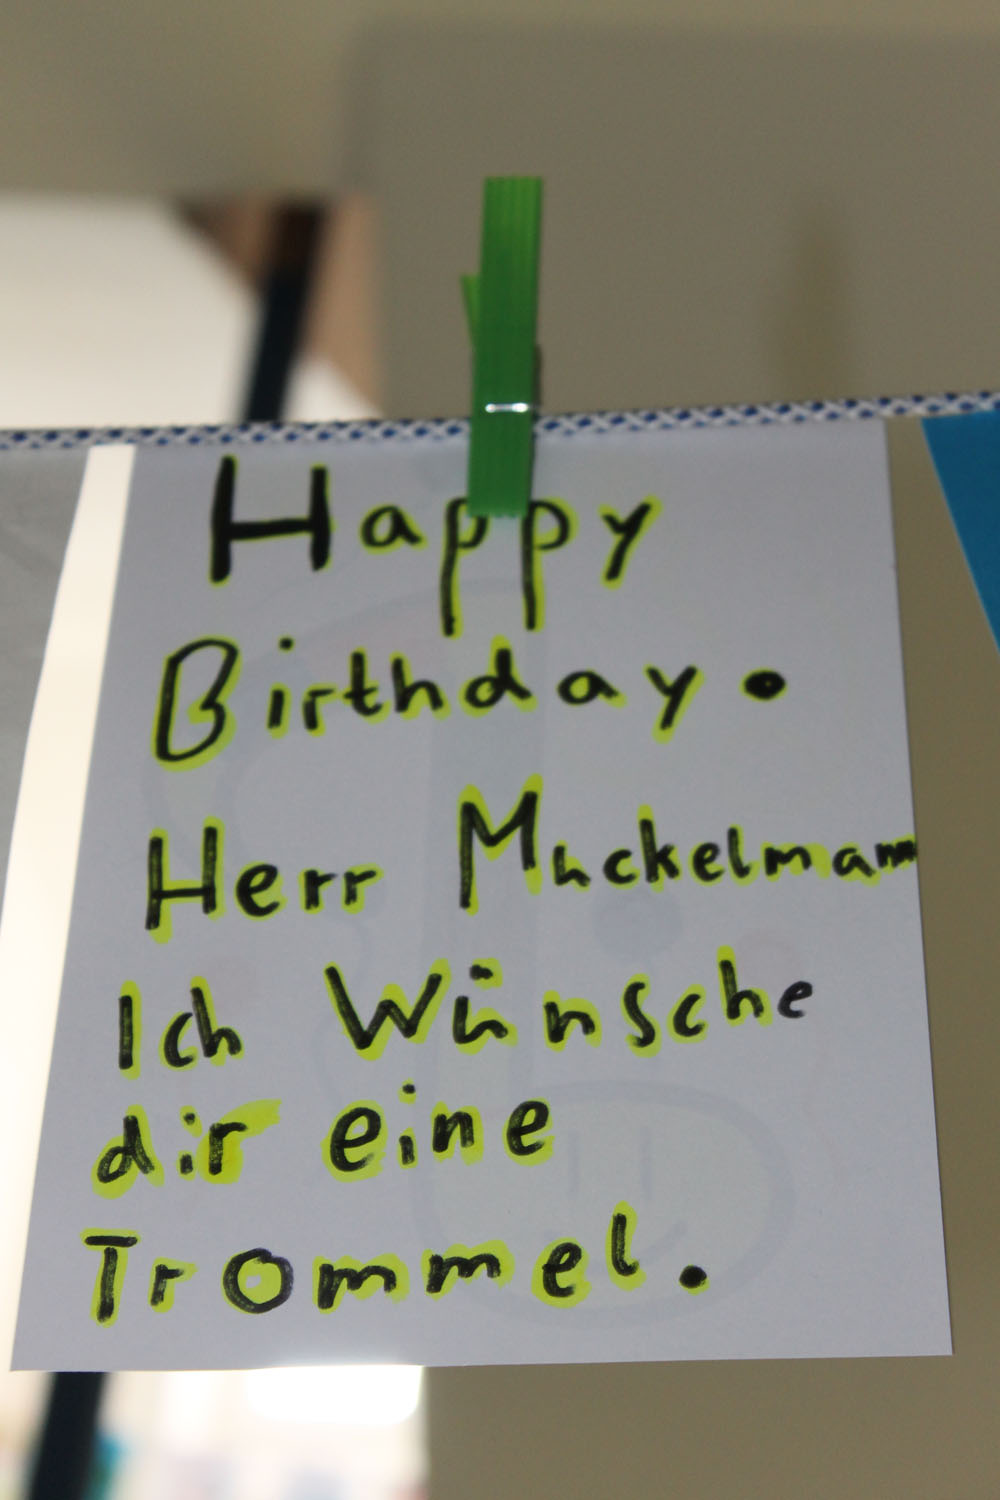 Happy
Birthday.
Herr Muckelmann
Ich Wünsche
dir eine
Trommel.